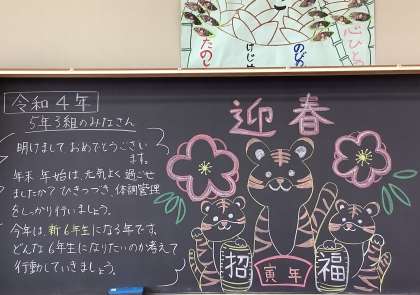 心ひとつ
のびの
けじ
たのし
令和4年
5年3組のみなさん
明けましておめでとうござい
ます。
年末年始は、元気よく過ごせ
ましたか?ひきつづき、体調管理
をしっかり行いましょう。
今年は、新6年生になる年です。
どんな6年生になりたいのか考えて
行動していきましょう。
迎春
招
寅年
福